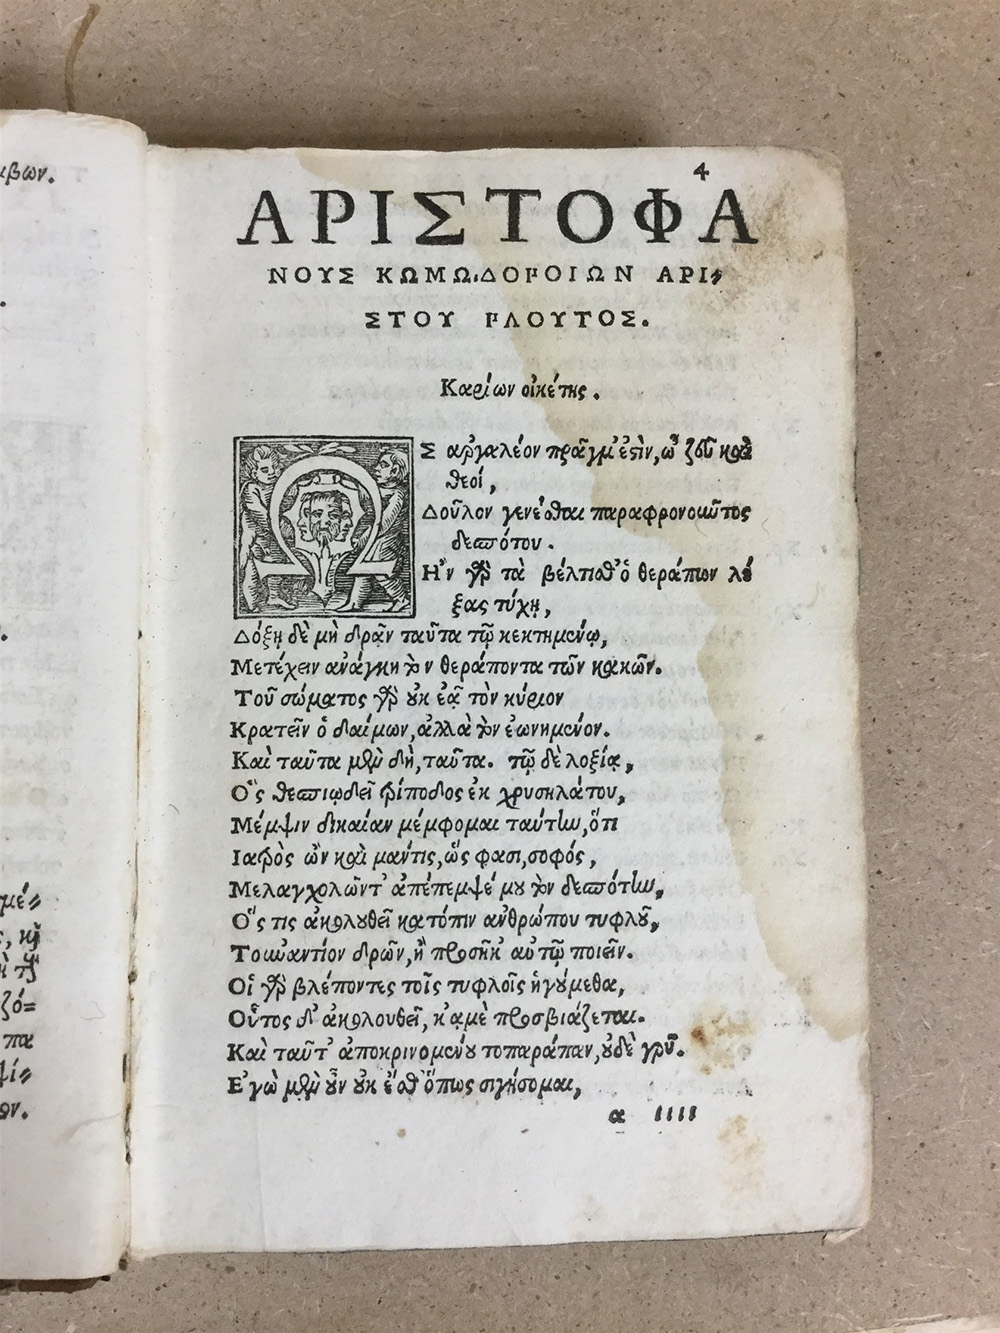 αβων.
4
ΑΡΙΣΤΟΦΑ
ΝΟΥΣ ΚΩΜΩΔΟΠΟΙΩΝ ΑΡΙ-
ΣΤΟΥ ΠΛΟΥΤΟΣ.
Καρίων οἰκέτης.
Ως ἀργαλέον πρᾶγμ' ἐστὶν, ὦ ζεῦ καὶ
θεοί,
Δοῦλον γενέσθαι παραφρονοῦντος
δεσπότου.
Ἢν γὰρ τὰ βέλτισθ' ὁ θεράπων λέ
ξας τύχῃ,
Δόξῃ δὲ μὴ δρᾷν ταῦτα τῷ κεκτημένῳ,
Μετέχειν ἀνάγκη τὸν θεράποντα τῶν κακῶν.
Τοῦ σώματος γὰρ οὐκ ἐᾷ τὸν κύριον
Κρατεῖν ὁ δαίμων, ἀλλὰ τὸν ἐωνημένον.
Καὶ ταῦτα μὲν δὴ, ταῦτα. τῷ δὲ λοξίᾳ,
Ὃς θεσπιῳδεῖ τρίποδος ἐκ χρυσηλάτου,
Μέμψιν δικαίαν μέμφομαι ταύτην, ὅτι
Ἰατρὸς ὢν καὶ μαντις, ὥς φασι, σοφός,
Μελαγχολῶντ' ἀπέπεμψέ μου τὸν δεσπότην,
Ὅς τις ἀκολουθεῖ κατόπιν ἀνθρώπου τυφλοῦ,
Τοὐναντίον δρῶν, ἢ προσῆκ' αὐτῷ ποιεῖν.
Οἱ γὰρ βλέποντες τοῖς τυφλοῖς ἡγούμεθα,
Οὗτος δ' ἀκολουθεῖ, κἀμὲ προσβιάζεται.
Καὶ ταῦτ' ἀποκρινομένου τοπαράπαν, οὐδὲ γρῦ.
Ἐγὼ μὲν οὖν οὐκ ἔσθ' ὅπως σιγήσομαι,
α iiii